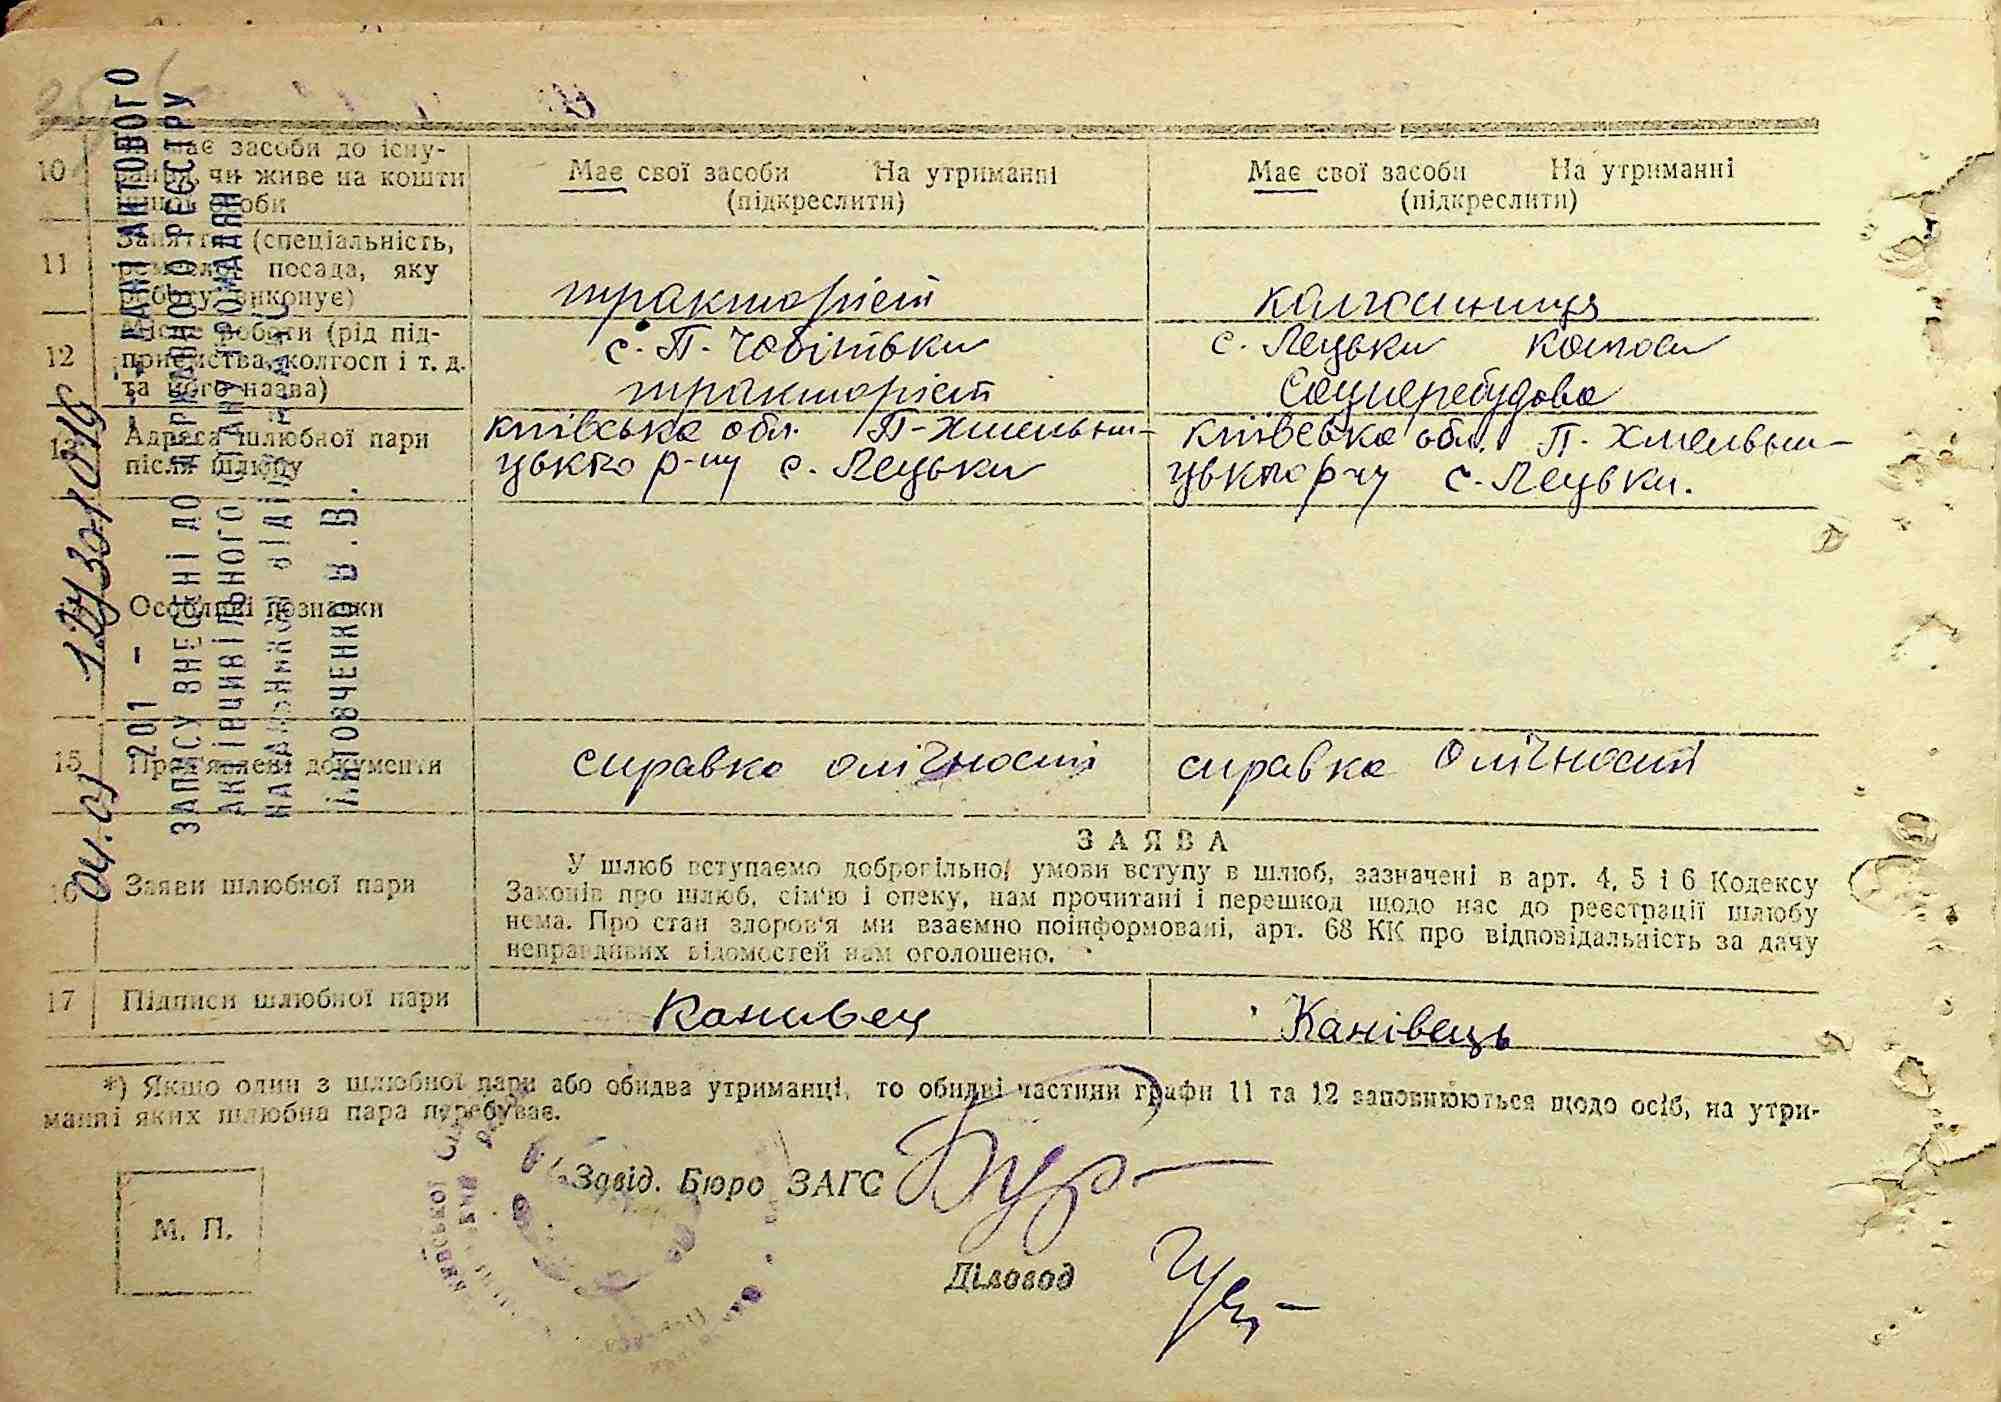 10
має засоби до існу-
вання, чи живе на кошти
іншої особи
Має свої засоби На утриманні
(підкреслити)
Має свої засоби На утриманні
(підкреслити)
11
Заняття (спеціальність,
ремесло, посада, яку
роботу виконує)
тракторіст
колгосниця
12
Місце роботи (рід під-
приємства, колгосп і т. д.
та його назва)
с. П. Чобітьки
тракторіст
с. Лецьки колгосп
Соцперебудова
13
Адреса шлюбної пари
після шлюбу
Київська обл. П-Хмельни-
цького р-ну с. Лецьки
Київська обл. П. Хмельни-
цького р-ну с. Лецьки.
14
Особливі познавки
15
Пред'явлені документи
справка олічності
справка олічності
16
Заяви шлюбної пари
ЗАЯВА
У шлюб вступаємо добровільно, умови вступу в шлюб, зазначені в арт. 4, 5 і 6 Кодексу
Законів про шлюб, сім'ю і опеку, нам прочитані і перешкод щодо нас до реєстрації шлюбу
нема. Про стан здоров'я ми взаємно поінформовані, арт. 68 КК про відповідальність за дачу
неправдивих відомостей нам оголошено.
17
Підписи шлюбної пари
Канивец
Канівець
*) Якщо один з шлюбної пари або обидва утриманці, то обидві частини графи 11 та 12 заповнюються щодо осіб, на утри-
манні яких шлюбна пара перебуває.
Завід. Бюро ЗАГС
М. П.
Діловод
АКТОВОГО
ЗАПИСУ ВНЕСЕНІ ДО ДЕРЖАВНОГО РЕЄСТРУ
АКТІВ ЦИВІЛЬНОГО СТАНУ ГРОМАДЯН
НАЧАЛЬНИКОМ ВІДДІЛУ
ЛИТОВЧЕНКО В.В.
201